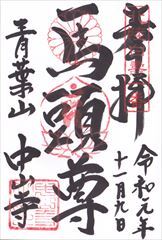 奉拝
令和元年
十一月九日
馬頭尊
青葉山
中山寺